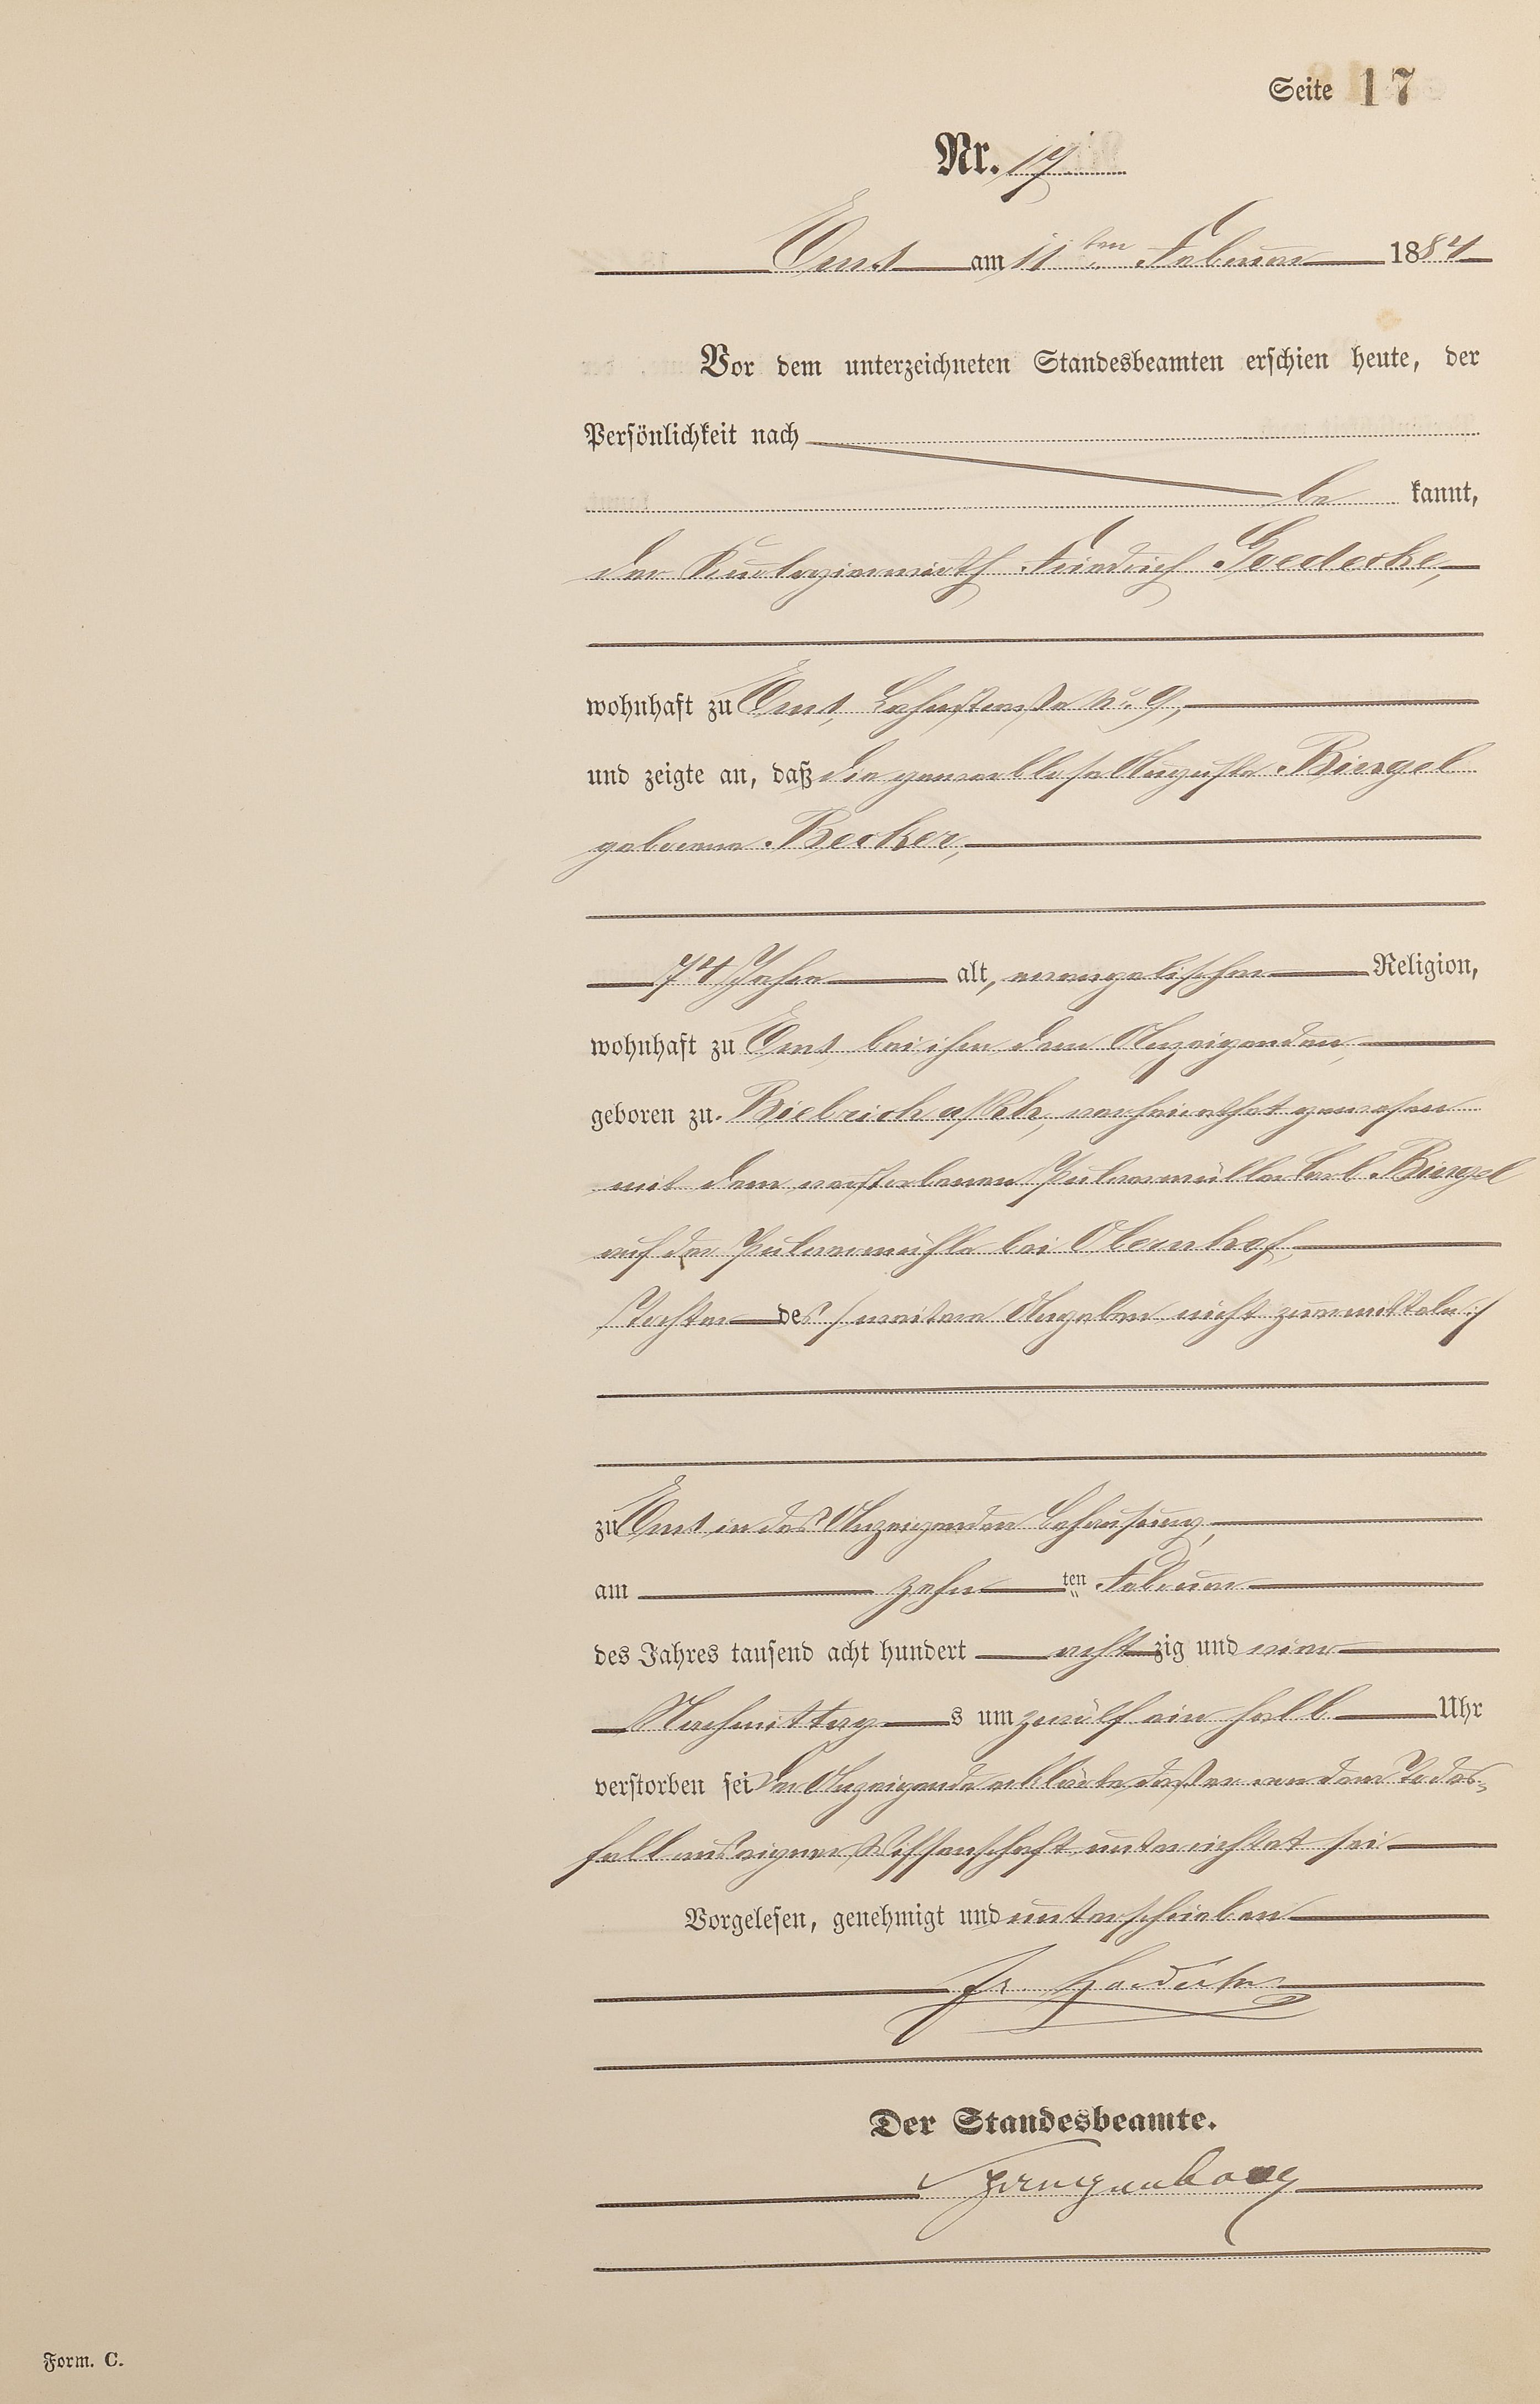 Seite 17
Nr. 17
Ems am 11ten Februar 1884
Vor dem unterzeichneten Standesbeamten erschien heute, der
Persönlichkeit nach
be kannt,
der Kurlogierwirth Friedrich Goedecke,
wohnhaft zu Ems, Lahnstraße No. 9,
und zeigte an, daß die gewerblose Auguste Biergel
geborene Becker,
74 Jahre alt, evangelischer Religion,
wohnhaft zu Ems, bei ihm dem Anzeigenden,
geboren zu Biebrich a/Rh, verheirathet gewesen
mit dem verstorbenen Pulvermüller Carl Biergel
auf der Pulvermühle bei Obernhof,
Tochter des /: weitere Angaben nicht zu ermitteln :/
zu Ems in des Anzeigenden Behausung,
am zehn ten Februar
des Jahres tausend acht hundert acht zig und vier
Nachmittag s um zwölf ein halb Uhr
verstorben sei Der Anzeigende erklärte, daß er von dem Todes-
fall aus eigener Wissenschaft unterrichtet sei
Vorgelesen, genehmigt und unterschrieben
Fr. Goedecke
Der Standesbeamte.
Form. C.